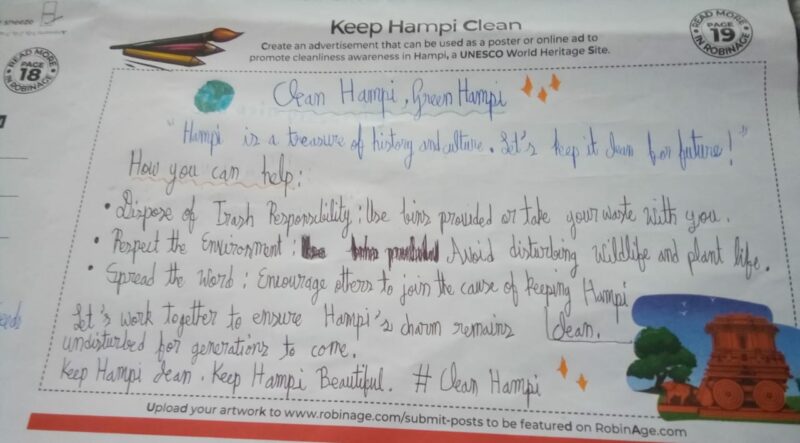 Keep Hampi Clean
READ MORE
PAGE
19
IN ROBINAGE
Create an advertisement that can be used as a poster or online ad to
promote cleanliness awareness in Hampi, a UNESCO World Heritage Site.
READ MORE
PAGE
18
IN ROBINAGE
Clean Hampi, Green Hampi
"Hampi is a treasure of history and culture. Let's keep it clean for future!"
How you can help:
• Dispose of Trash Responsibility: Use bins provided or take your waste with you.
• Respect the Environment: Avoid disturbing wildlife and plant life.
• Spread the Word: Encourage others to join the cause of keeping Hampi
clean.
Let's work together to ensure Hampi's charm remains
undisturbed for generations to come.
Keep Hampi clean. Keep Hampi Beautiful. # Clean Hampi
Upload your artwork to www.robinage.com/submit-posts to be featured on RobinAge.com